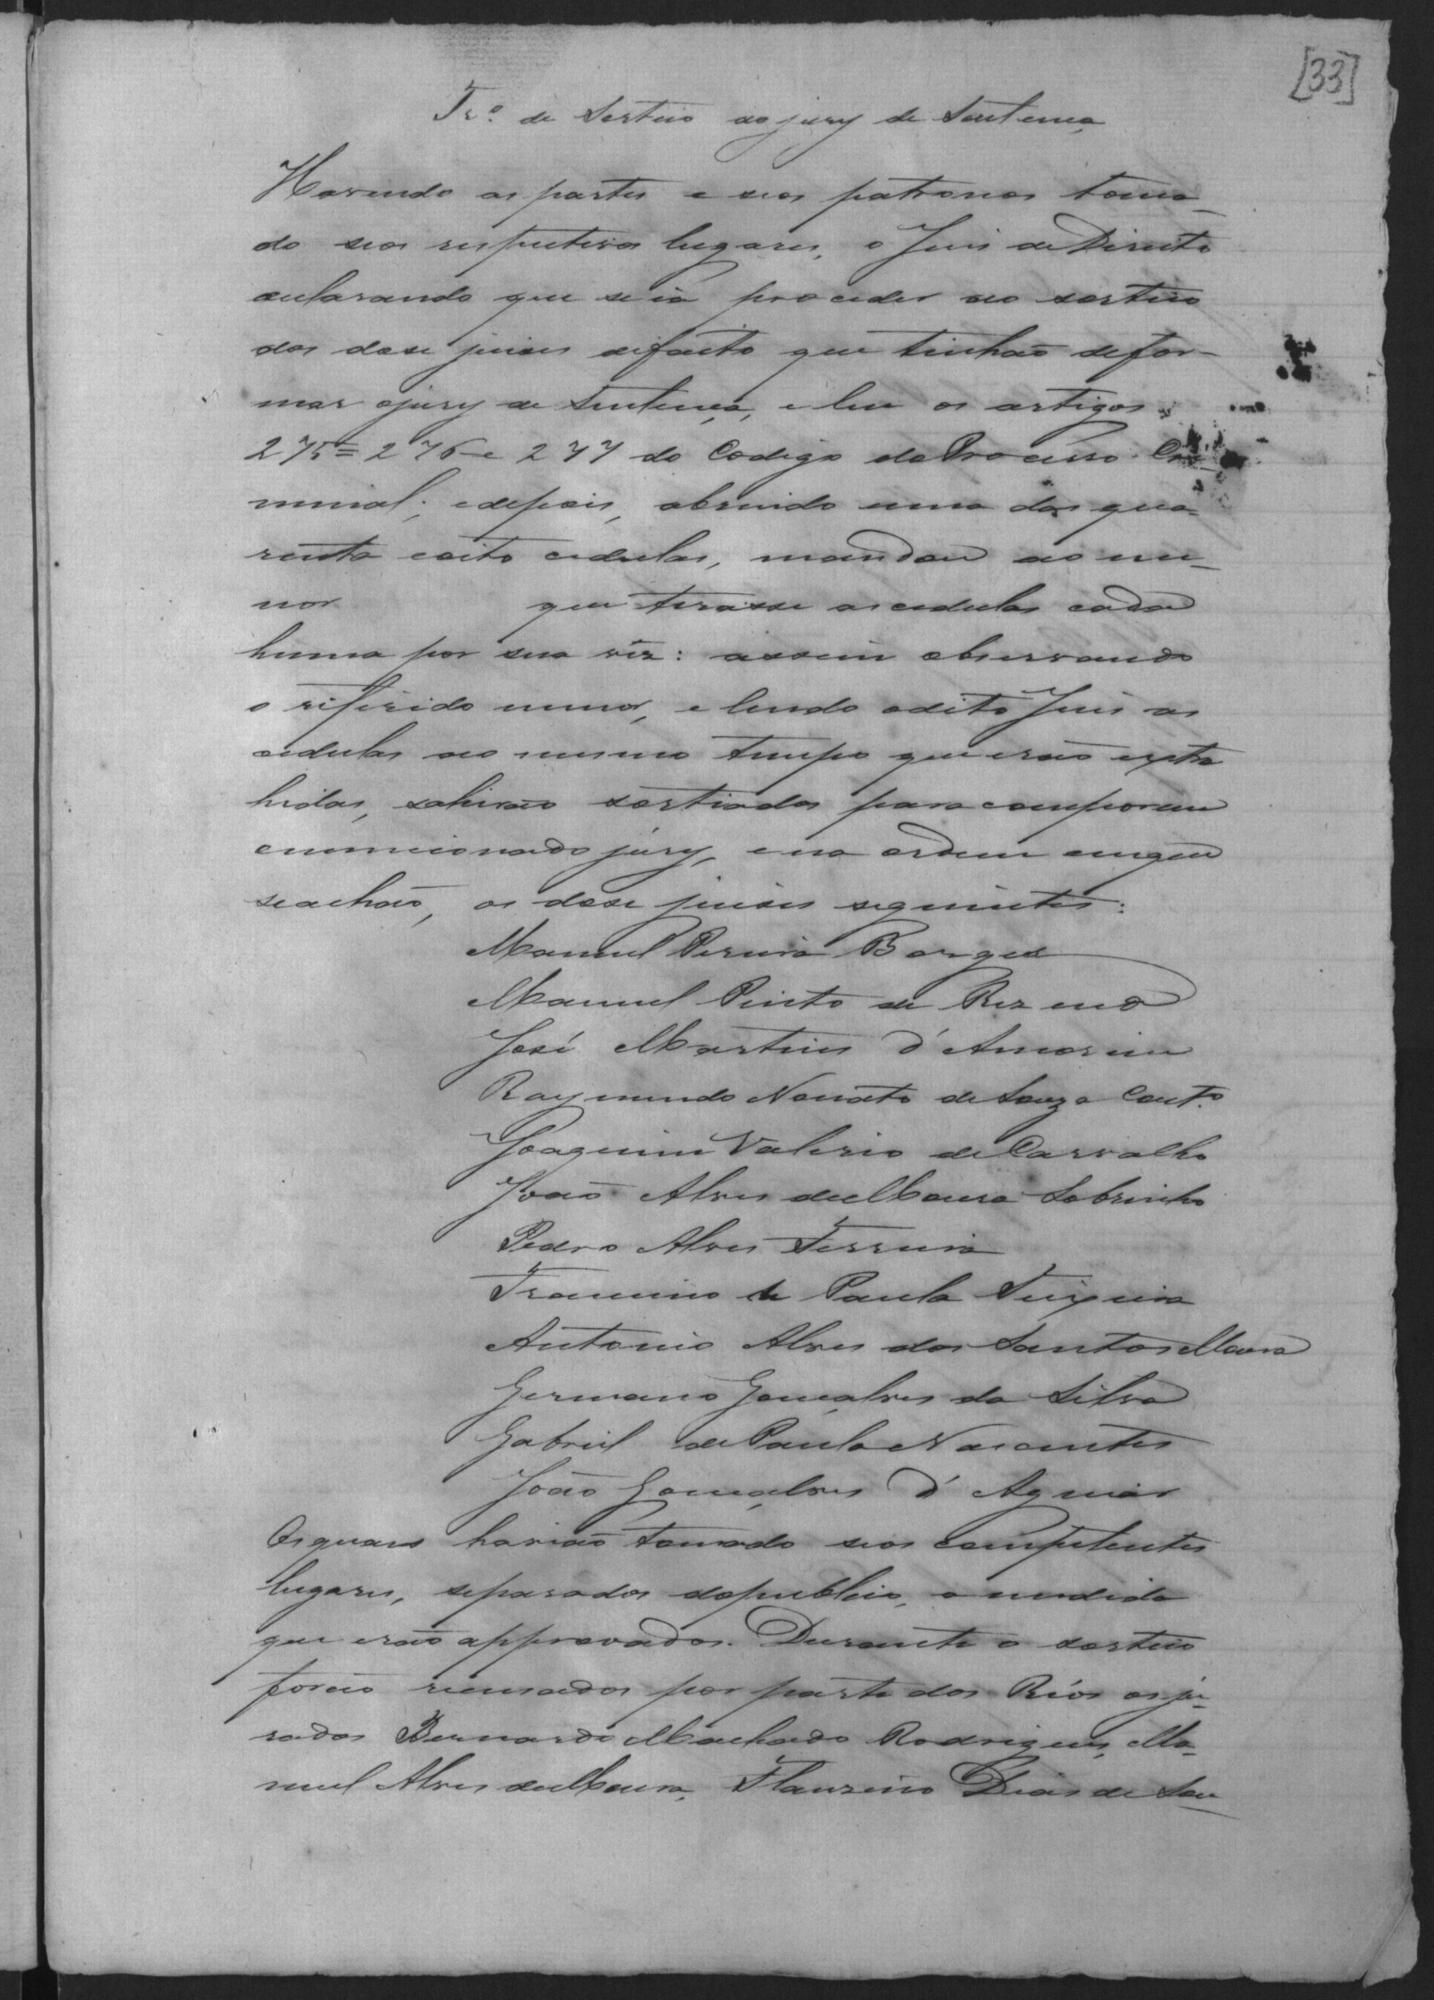 [33]
Tr.º de Sorteio do jury de Sentença
Havendo as partes e seos patronos toma-
do seos respectivos lugares, o Juis de Direito
declarando que se ia proceder ao sorteio
dos dose juises de facto que tinhão de for-
mar o jury de Sentença, e leu os artigos
275= 276 e 277 do Codigo do Processo Cri-
minal; e depois, abrindo uma das qua-
renta e oito cedulas, mandou ao me-
nor que tirasse as cedulas cada
huma por sua vez: assim observando
o referido menor, e lendo o dito Juis as
cedulas ao mesmo tempo que erão extra
hidas, sahirão sortiados para comporem
o mencionado jury, e na ordem em que
se achão, os dose juises seguintes:
Manuel Pereira Borges
Manuel Pinto de Rezende
José Martins d'Amorim
Raymundo Nonato de Souza Cout.º
Joaquim Valerio de Carvalho
João Alves de Moura Sobrinho
Pedro Alves Ferreira
Francisco de Paula Teixeira
Antonio Alves dos Santos Moura
Germano Gonçalves da Silva
Gabriel de Paula Nascentes
João Gonçalves d'Aguiar
Os quaes havião tomado seos competentes
lugares, separados do publico, a medida
que erão approvados. Durante o sorteio
forão recusados por parte dos Réos os ju-
rados Bernardo Machado Rodrigues, Ma-
nuel Alves de Moura, Flauzino Dias de Sou-